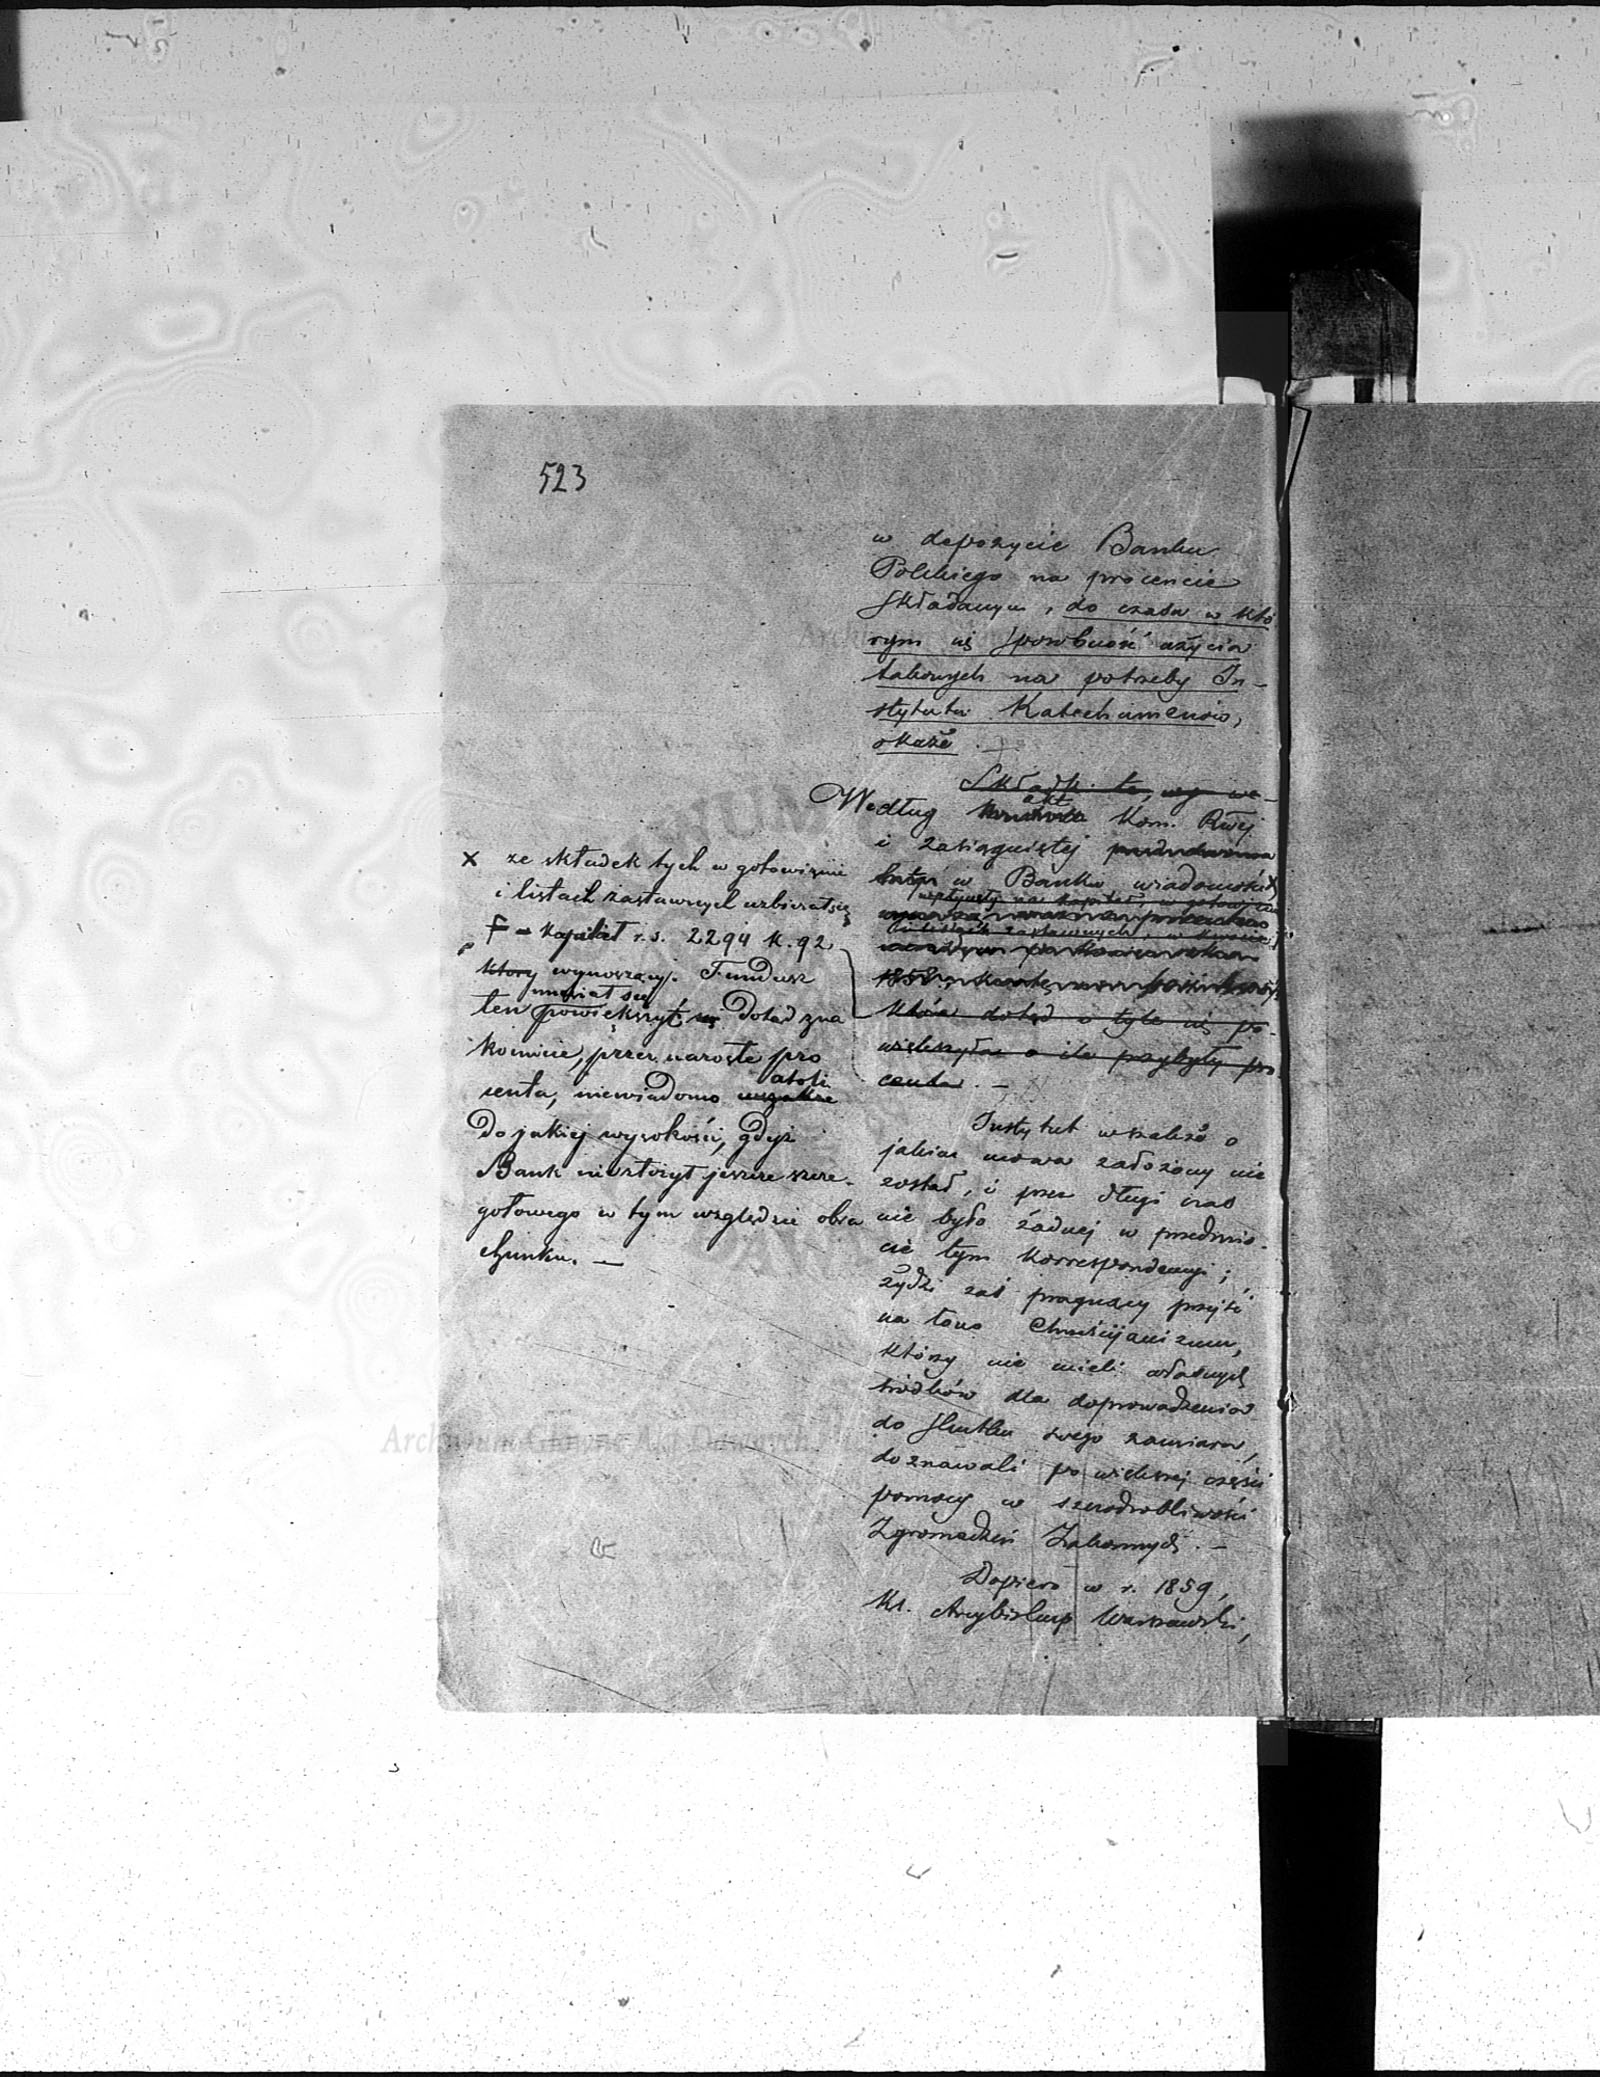 523
w depozycie Banku
Polskiego na procencie
składanym, do czasu w któ
rym się sposobność użycia
takowych na potrzeby In-
stytutu Katechumenów,
okaże. —
Składki te,
Według akt Kom. Rwej
i zasiągniętej
w Banku wiadomości X
wpłynęły na kapitał, w gotowiźnie
i listach zastawnych, w kwocie
1858
która dotąd o tyle się po-
większyła o ile przybyły pro
centa. —
Instytut wszakże o
jakim mowa założony nie
został, i przez długi czas
nie było żadnej w przedmio-
cie tym korrespondencyi;
żydzi zaś pragnący przejść
na łono Chrześcijanizmu,
którzy nie mieli własnych
środków dla doprowadzenia
do skutku swego zamiaru,
doznawali po większej części
pomocy w szczodrobliwości
Zgromadzeń Zakonnych. —
Dopiero w r. 1859,
Ks. Arcybiskup Warszawski,
X ze składek tych w gotowiźnie
i listach zastawnych uzbierał się
kapitał r. s. 2294 k. 92
który wynoszący. Fundusz
musiał się
ten powiększyć się dotąd zna
komicie, przez narosłe pro
atoli
centa, niewiadomo wszakże
do jakiej wysokości, gdyż
Bank niezłożył jeszcze szcze-
gółowego w tym względzie obra
chunku. —
Archiwum Główne Akt Dawnych